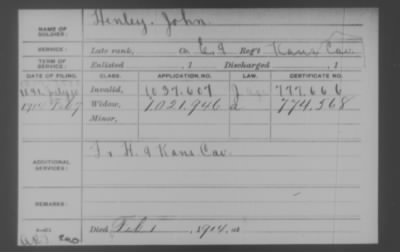 NAME OF SOLDIER: Henley, John
SERVICE: Late rank, Co. E, 9 Reg't Kans Cav.
TERM OF SERVICE: Enlisted , 1 Discharged , 1
DATE OF FILING. CLASS. APPLICATION NO. LAW. CERTIFICATE NO.
Invalid, 1037.607 J 777.666
1914 Feb 7 Widow, 1021.946 a 774.368
Minor,
ADDITIONAL SERVICES: F, H. 9 Kans Cav.
REMARKS:
Died Feb 1, 1914, at